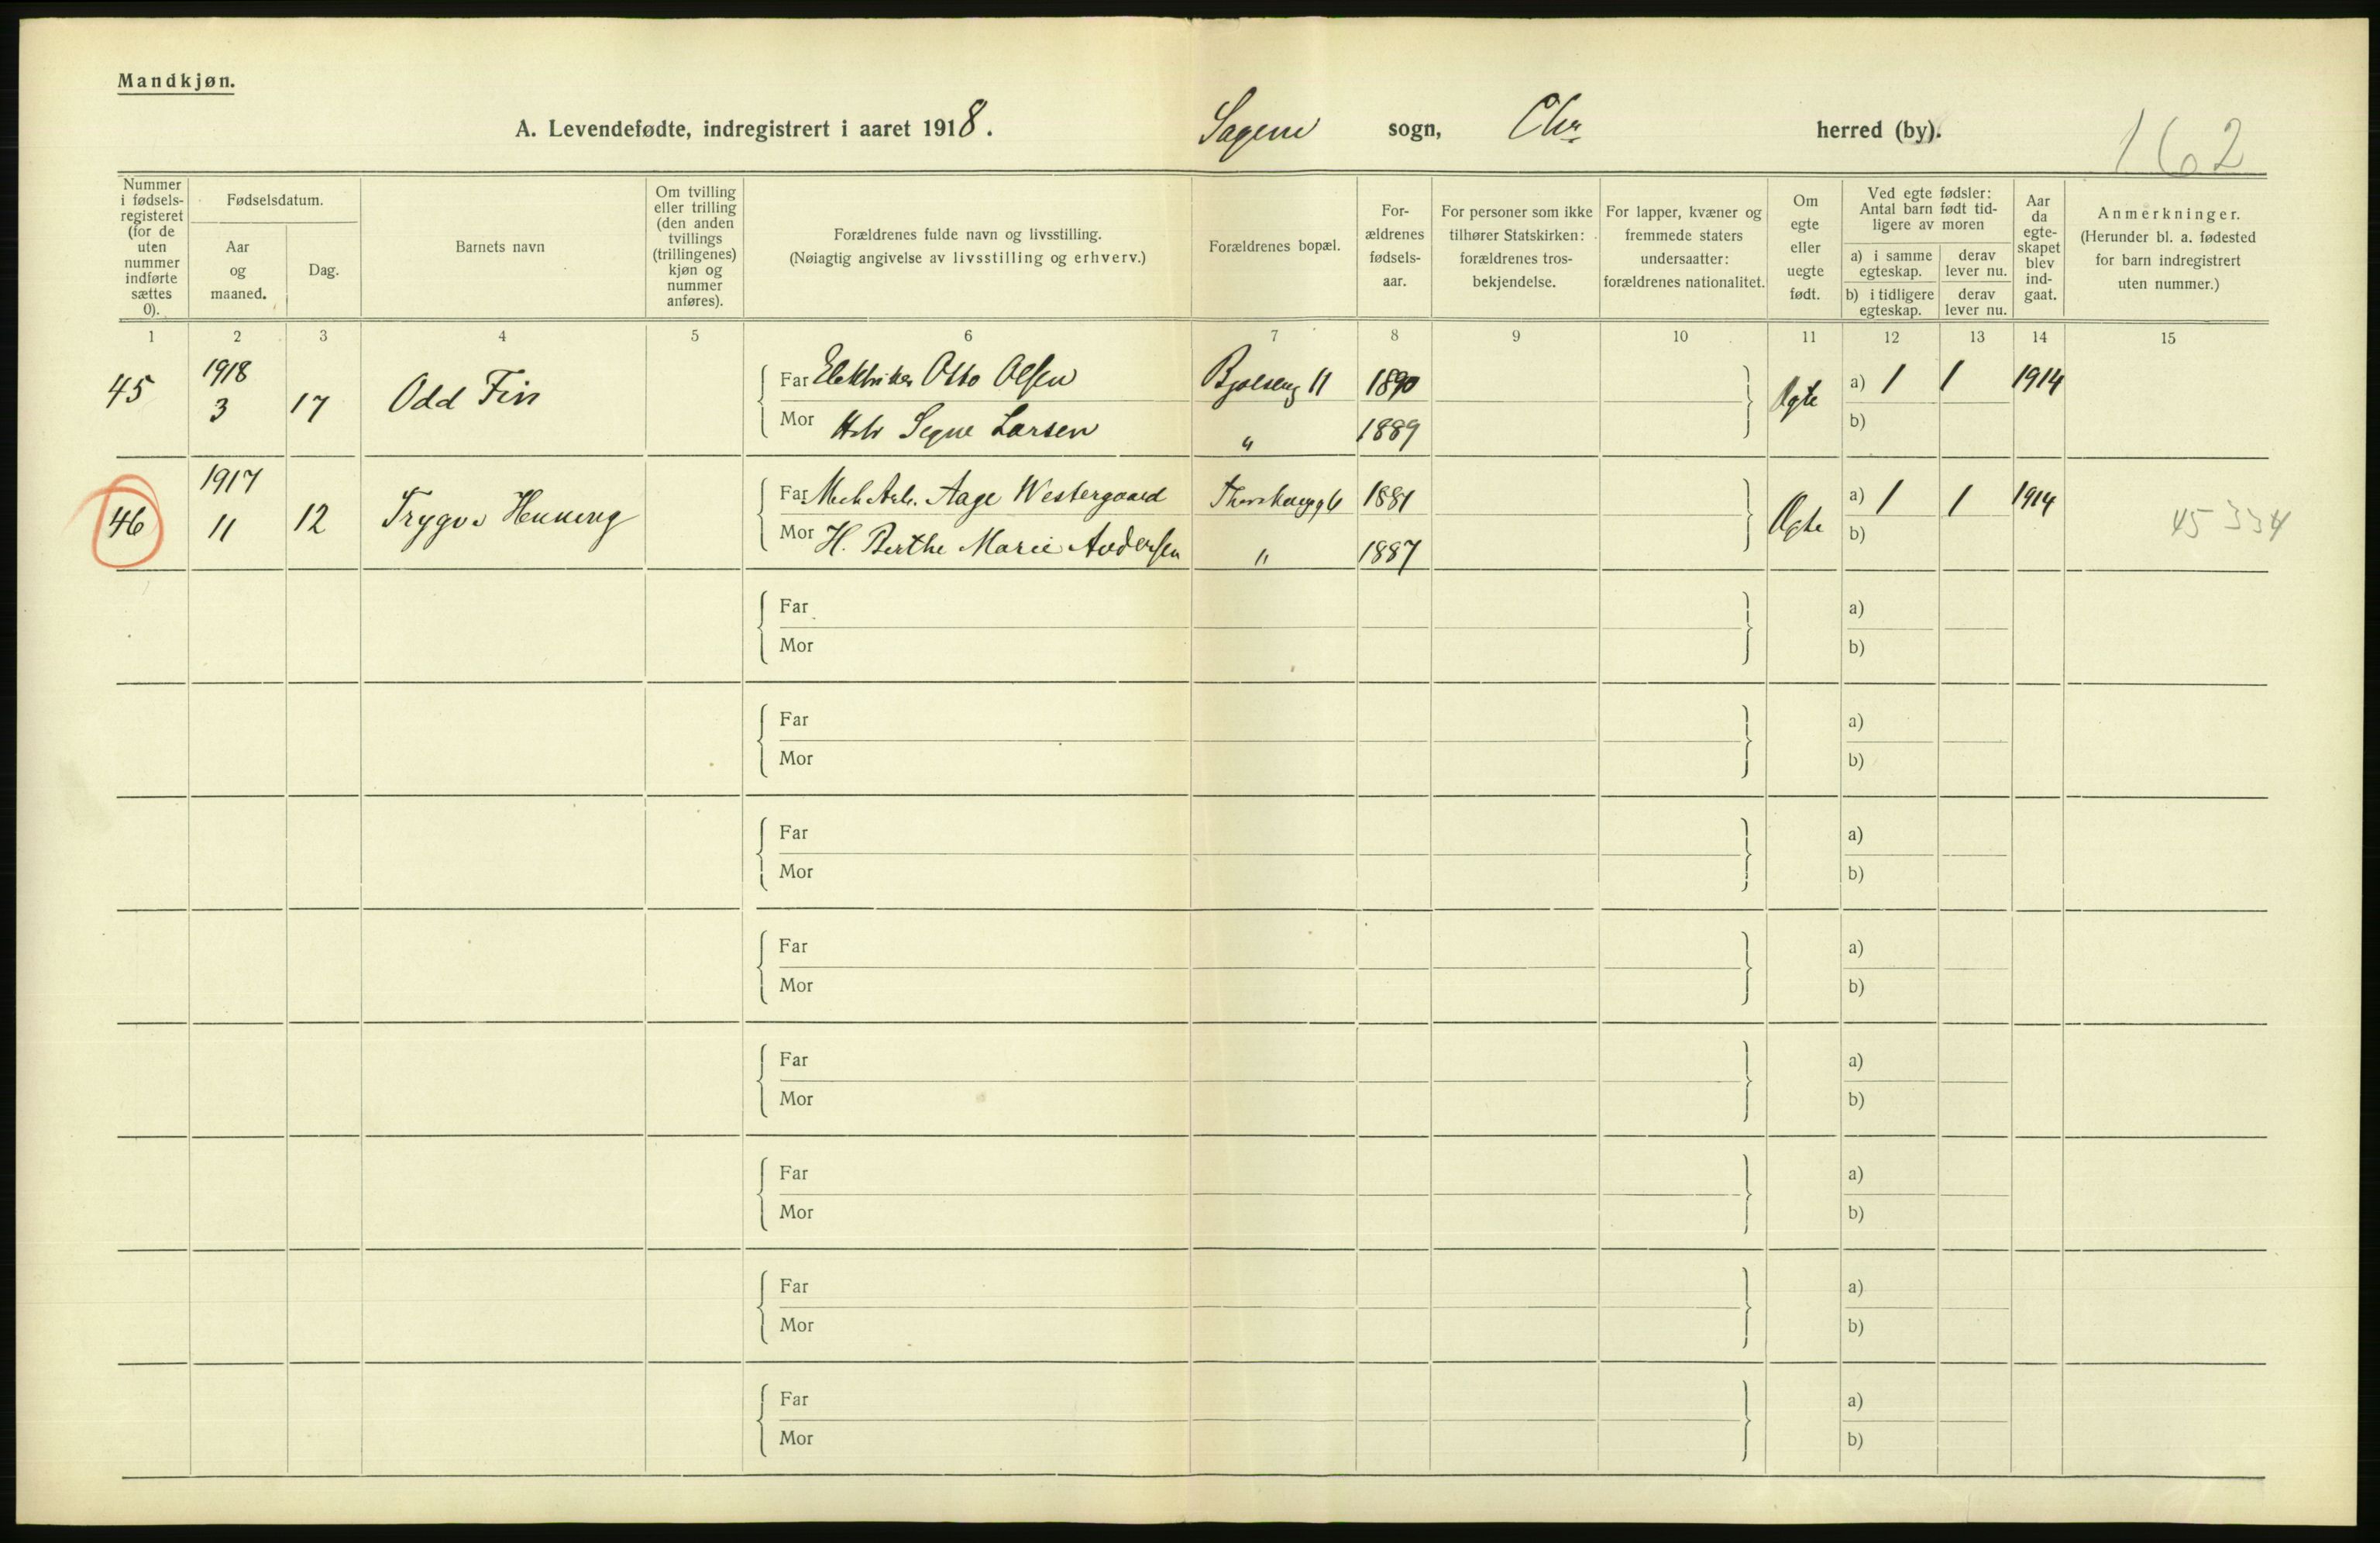 Mandkjøn.
A. Levendefødte, indregistrert i aaret 1918. Sagene sogn, Chr. herred (by).
162
Nummer i fødsels-registeret (for de uten nummer indførte sættes 0).
Fødselsdatum.
Aar og maaned.
Dag.
Barnets navn
Om tvilling eller trilling (den anden tvillings (trillingenes) kjøn og nummer anføres).
Forældrenes fulde navn og livsstilling.
(Nøiagtig angivelse av livsstilling og erhverv.)
Forældrenes bopæl.
For-ældrenes fødsels-aar.
For personer som ikke tilhører Statskirken: forældrenes tros-bekjendelse.
For lapper, kvæner og fremmede staters undersaatter: forældrenes nationalitet.
Om egte eller uegte født.
Ved egte fødsler: Antal barn født tid-ligere av moren
a) i samme egteskap.
derav lever nu.
b) i tidligere egteskap.
derav lever nu.
Aar da egte-skapet blev ind-gaat.
Anmerkninger.
(Herunder bl. a. fødested for barn indregistrert uten nummer.)
1 2 3 4 5 6 7 8 9 10 11 12 13 14 15
45 1918 3 17 Odd Finn
Far Elektriker Otto Olsen Bjølseng 11 1890 Egte a) 1 1 1914
Mor Hstr Signe Larsen " 1889 b)
46 1917 11 12 Trygve Henning
Far Mek Arb. Aage Westergaard 1881 Egte a) 1 1 1914
Mor H. Berthe Marie Andersen " 1887 b)
45334
Far a)
Mor b)
Far a)
Mor b)
Far a)
Mor b)
Far a)
Mor b)
Far a)
Mor b)
Far a)
Mor b)
Far a)
Mor b)
Far a)
Mor b)